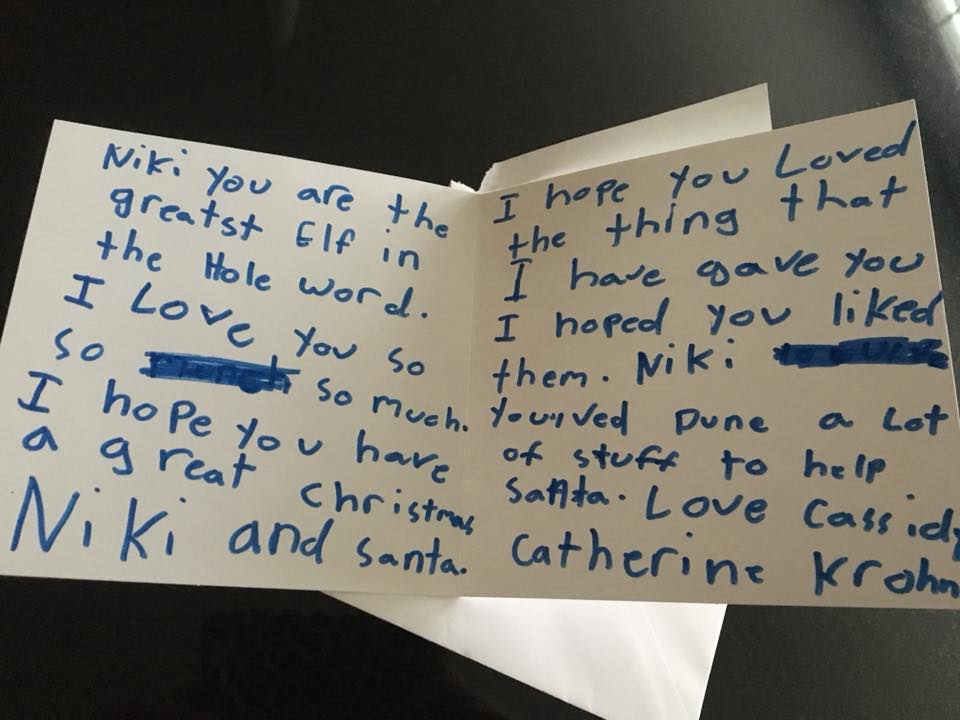 Niki you are the
greatst Elf in
the Hole word.
I Love you so
so so much.
I hope you have
a great christmas
Niki and santa.
I hope you Loved
the thing that
I have gave you
I hoped you liked
them. Niki
you,ved Dune a Lot
of stuff to help
santa. Love Cassidy
Catherine Krohn